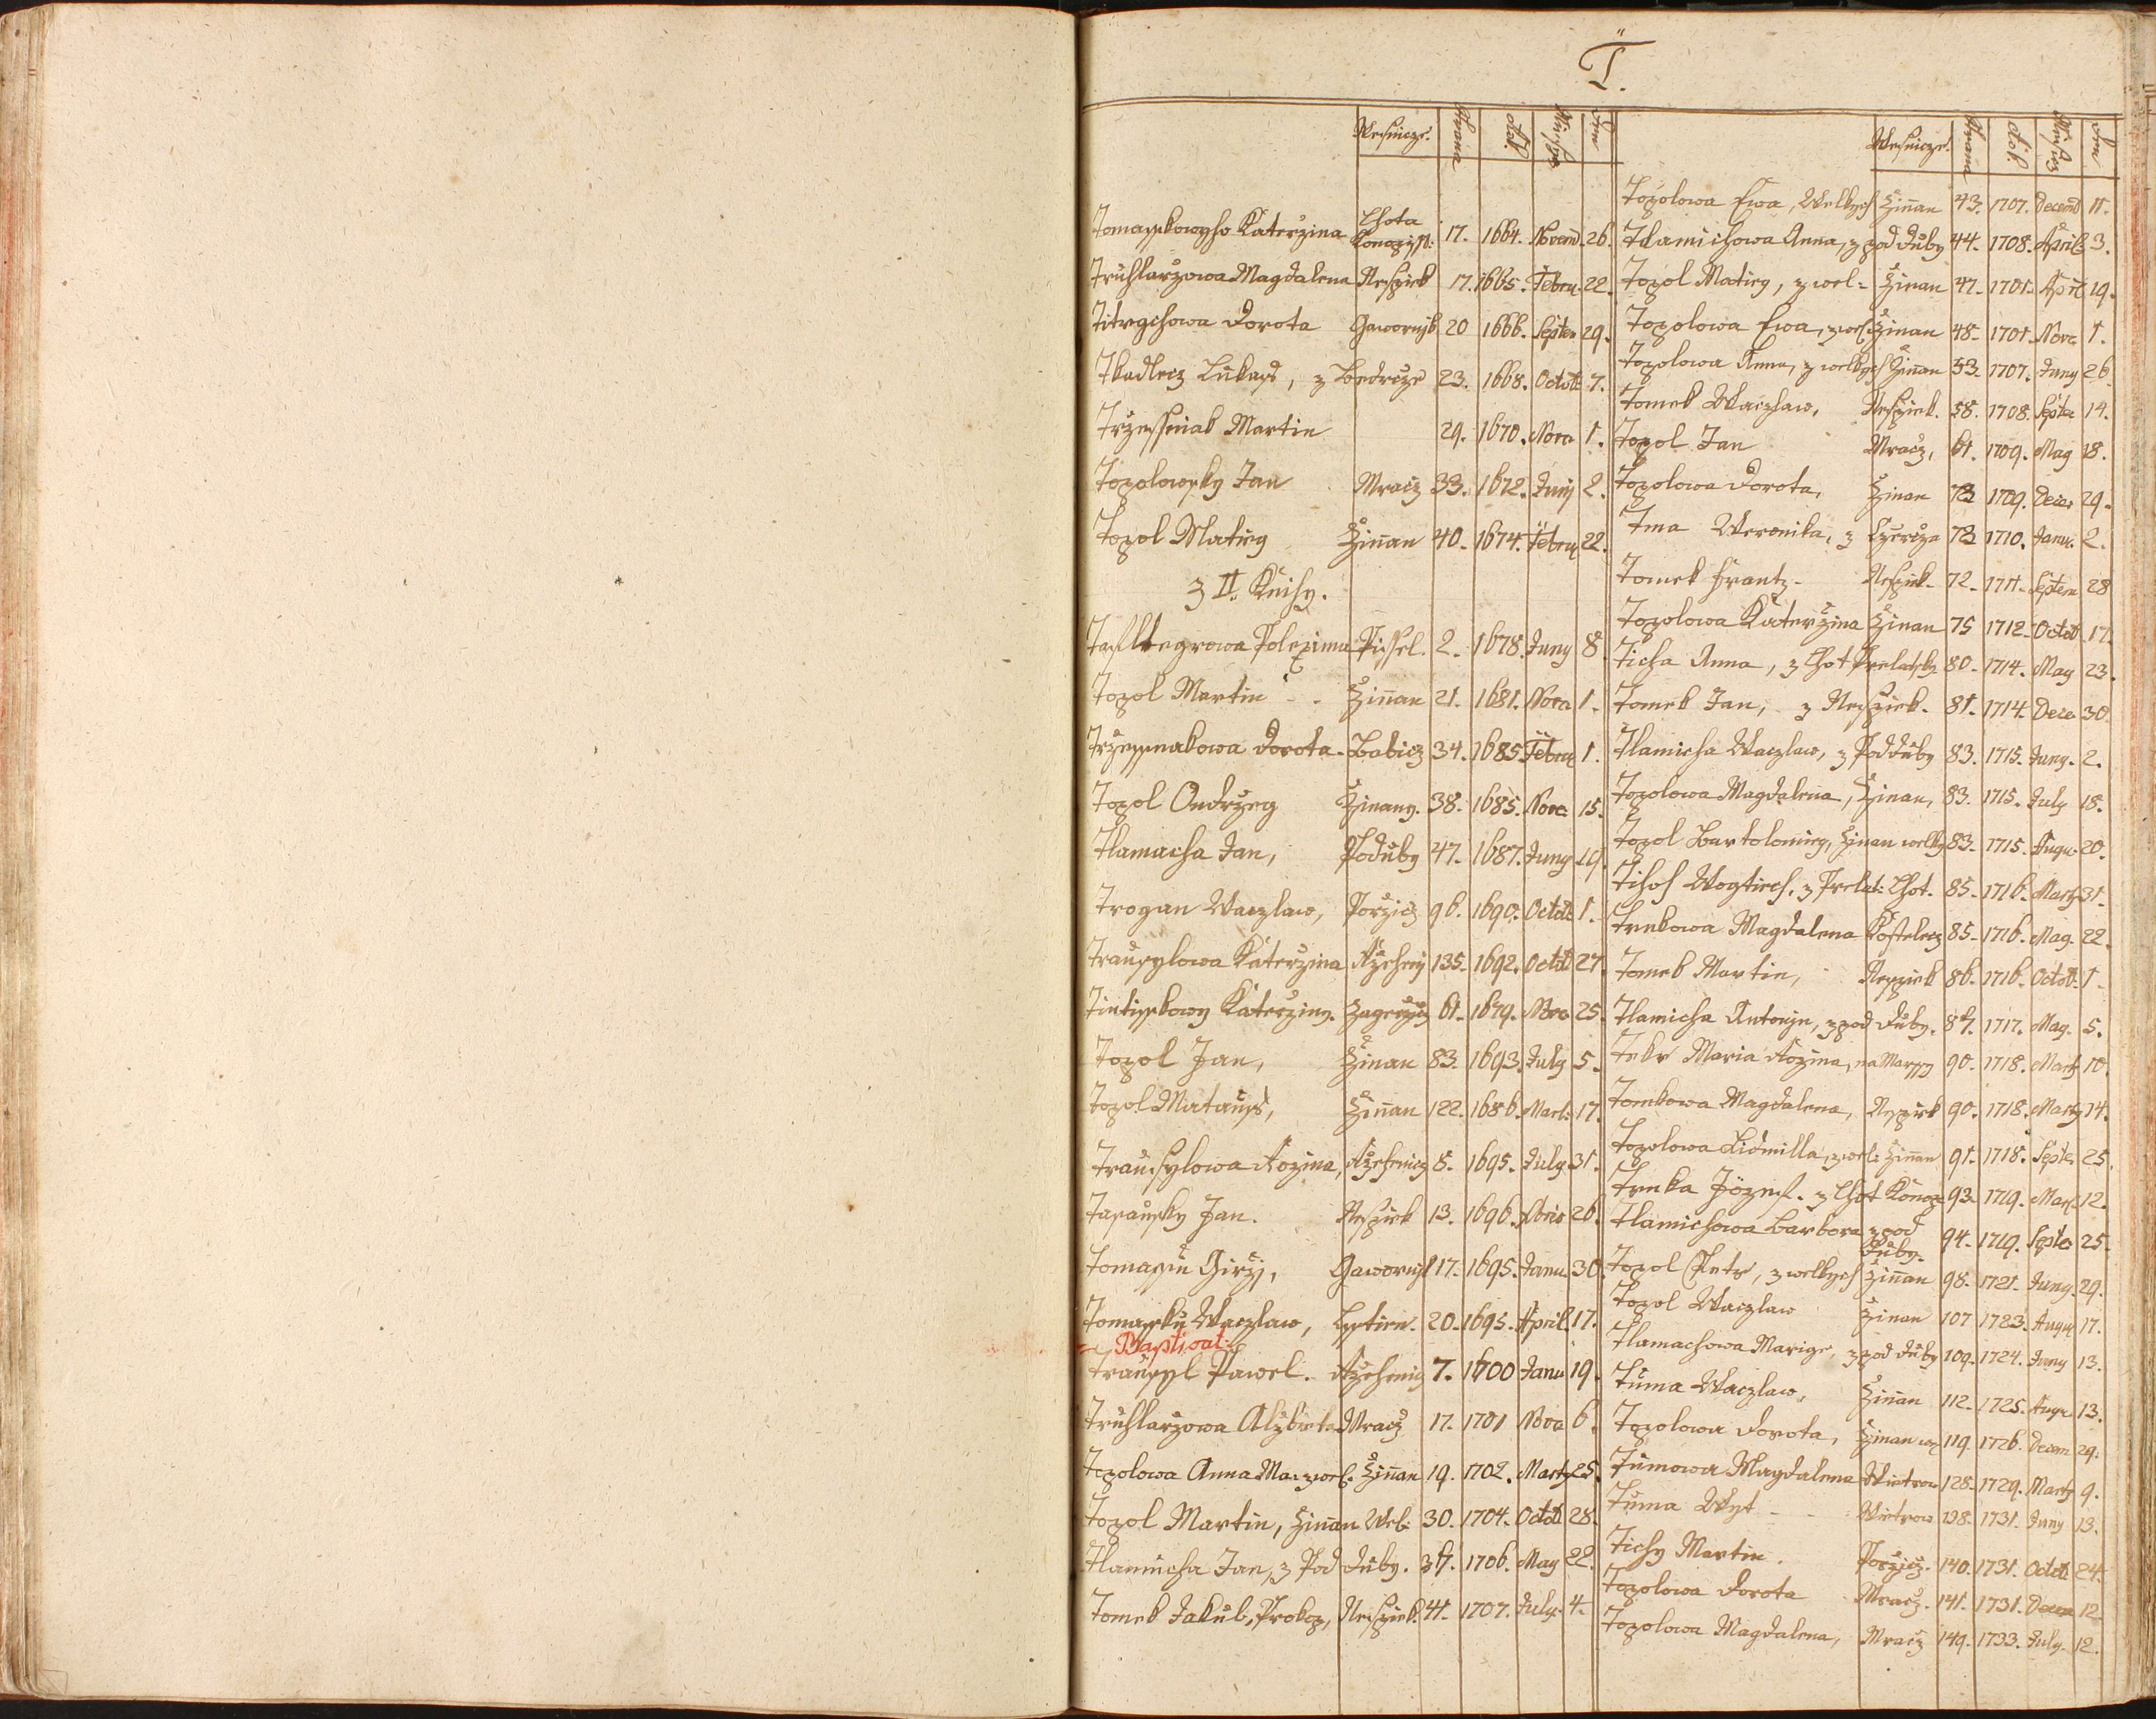 T.
Wesnicze. Strana Rok Miesycz Den
Tomasskowyho Katerzina Lhota Konopisst: 17. 1664. Novemb 26.
Truhlarzowa Magdalena Nespiek 17. 1665. Febru 22.
Dorota Gawornjk 20 1666. Septem 29.
Tkadlecz Lukass, z Bedrcze 23. 1668. Octob 7.
Martin 29. 1670. Nove 1.
Topolowsky Jan Mracz 33. 1672. Juny 2.
Topol Matieg Zinan 40. 1674. Febru 22.
z II. Knihy.
Polexina Pissel. 2. 1678. Juny 8.
Topol Martin - - Zinan 21. 1681. Nove 1.
Dorota. Babicz 34. 1685. Febru 1.
Topol Ondrzeg Zinany. 38. 1685. Nove 15.
Tlamacha Jan, Poduby 47. 1687. Juny 19.
Trogan Waczlaw, Porzicz 96. 1690. Octob 1.
Trausylowa Katerzina 135. 1692. Octob 27.
Katerziny. 61. 1679. Nove 25.
Topol Jan, Zinan 83. 1693. July 5.
Topol Matauss, Zinan 122. 1686. Mart: 17.
Trausylowa Rozina, 8. 1695. July 31.
Jan. Nespiek 13. 1696. 26.
Tomassu Girzj, Gawornjk 17. 1695. Janu 30.
Tomassku Waczlaw, 20. 1695. April 17.
Baptisat:
Traussyl Pawel. 7. 1700 Janu 19.
Truhlarzowa Alzbieta Mracz 17. 1701 Nove 6.
Topolowa Anna Mar: z wel. Zinan 19. 1702. Marty 25.
Topol Martin, Zinan Wel: 30. 1704. Octob 28.
Tlamicha Jan, z Pod Duby. 37. 1706. May 22.
Tomek Jakub, Prokop, Nespiek. 41. 1707. July. 4.
Wesnicze. Strana Rok. Miesycz Den
Topolowa Ewa, Welkych Zinan 43. 1707. Decemb 11.
Tlamichowa Anna, z pod Duby 44. 1708. April 3.
Topol Matieg, z wel: Zinan 47. 1701. April 19.
Topolowa Ewa, z wel: Zinan 48. 1701. Nove 1.
Topolowa Anna, z welkych Zinan 53. 1707. Juny 26.
Tomek Waczlaw, Nespiek. 58. 1708. Septe 14.
Topol Jan Mracz, 61. 1709. May 18.
Topolowa Dorota, Zinan 73 1709. Dece 29.
Tma Weronika, z 73 1710. Janu. 2.
Tomek Frantz- Nespiek. 72. 1711. Septem 28
Topolowa Katerzina Zinan 75 1712. Octob 17.
Ticha Anna, z Lhot Prelatsky 80. 1714. May 23.
Tomek Jan, z Nespiek. 81. 1714. Dece 30.
Tlamicha Waczlaw, z Podduby 83. 1715. Juny. 2.
Topolowa Magdalena, Zinan, 83. 1715. July 18.
Topol Bartolomieg, Zinan welky 83. 1715. Augu. 20.
Wogtiech, z Prelat: Lhot. 85. 1716. Marty 31.
Trnkowa Magdalena Kostelecz 85. 1716. May. 22.
Tomek Martin, Nespiek 86. 1716. Octob. 1.
Tlamicha Antonjn, z pod Duby. 87. 1717. May. 5.
Maria Rozina, na 90. 1718. Marty 10.
Tomkowa Magdalena, Nespiek 90. 1718. Marty 14.
Topolowa Lidmilla, z wel: Zinan 91. 1718. Septe 25.
Trnka Jozef. z Lhot Konop: 93. 1719. Mart 12.
Tlamichowa Barbora z pod Duby. 94. 1719. Septe 25.
Topol Petr, z welkych Zinan 98. 1721. Juny. 29.
Topol Waczlaw Zinan 107 1723. Augu 17.
Tlamachowa Marige, z pod Duby 109. 1724. Juny 13.
Tuma Waczlaw, Zinan 112. 1725. Augu 13.
Topolowa Dorota, Zinan 119. 1726. Decem 29.
Tumowa Magdalena Wietrow 128. 1729. Marty 9.
Tuma Wyt - - Wietrow 138. 1731. Juny 13.
Tichy Martin. Porzicz. 140. 1731. Octob 24.
Topolowa Dorota Mracz. 141. 1731. Decem 12.
Topolowa Magdalena, Mracz 149. 1733. July. 12.